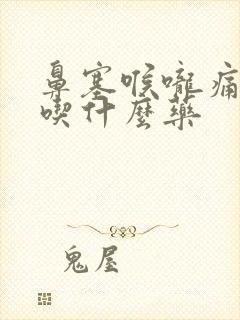 鼻塞喉嚨痛
喫什麼藥
鬼屋